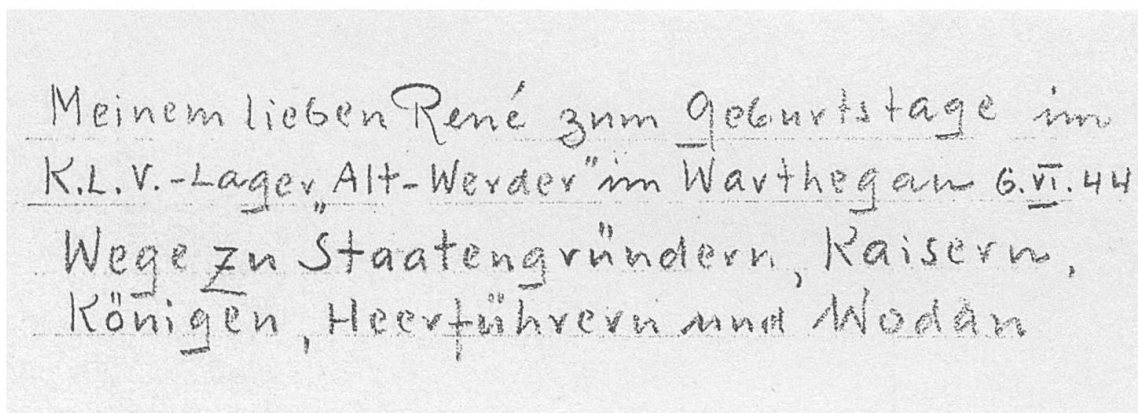 Meinem lieben René zum Geburtstage im
K.L.V.-Lager „Alt-Werder" im Warthegau 6.VI.44
Wege zu Staatengründern, Kaisern,
Königen, Heerführern und Wodan